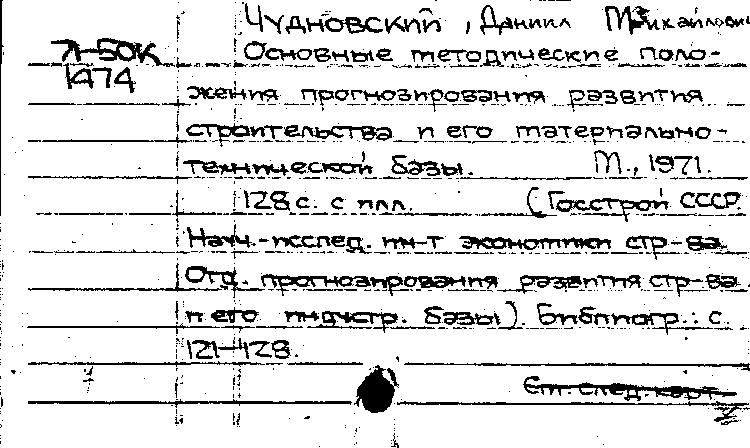 Чудновский, Даниил Михайлович
71-50К Основные методические поло-
1474
жения прогнозирования развития
строительства и его материально-
технической базы. М., 1971.
128с. с илл. (Госстрой СССР.
Науч.-исслед. ин-т экономики стр-ва.
Отд. прогнозирования развития стр-ва
и его индустр. базы). Библиогр.: с.
121-128.
См. след. карт.